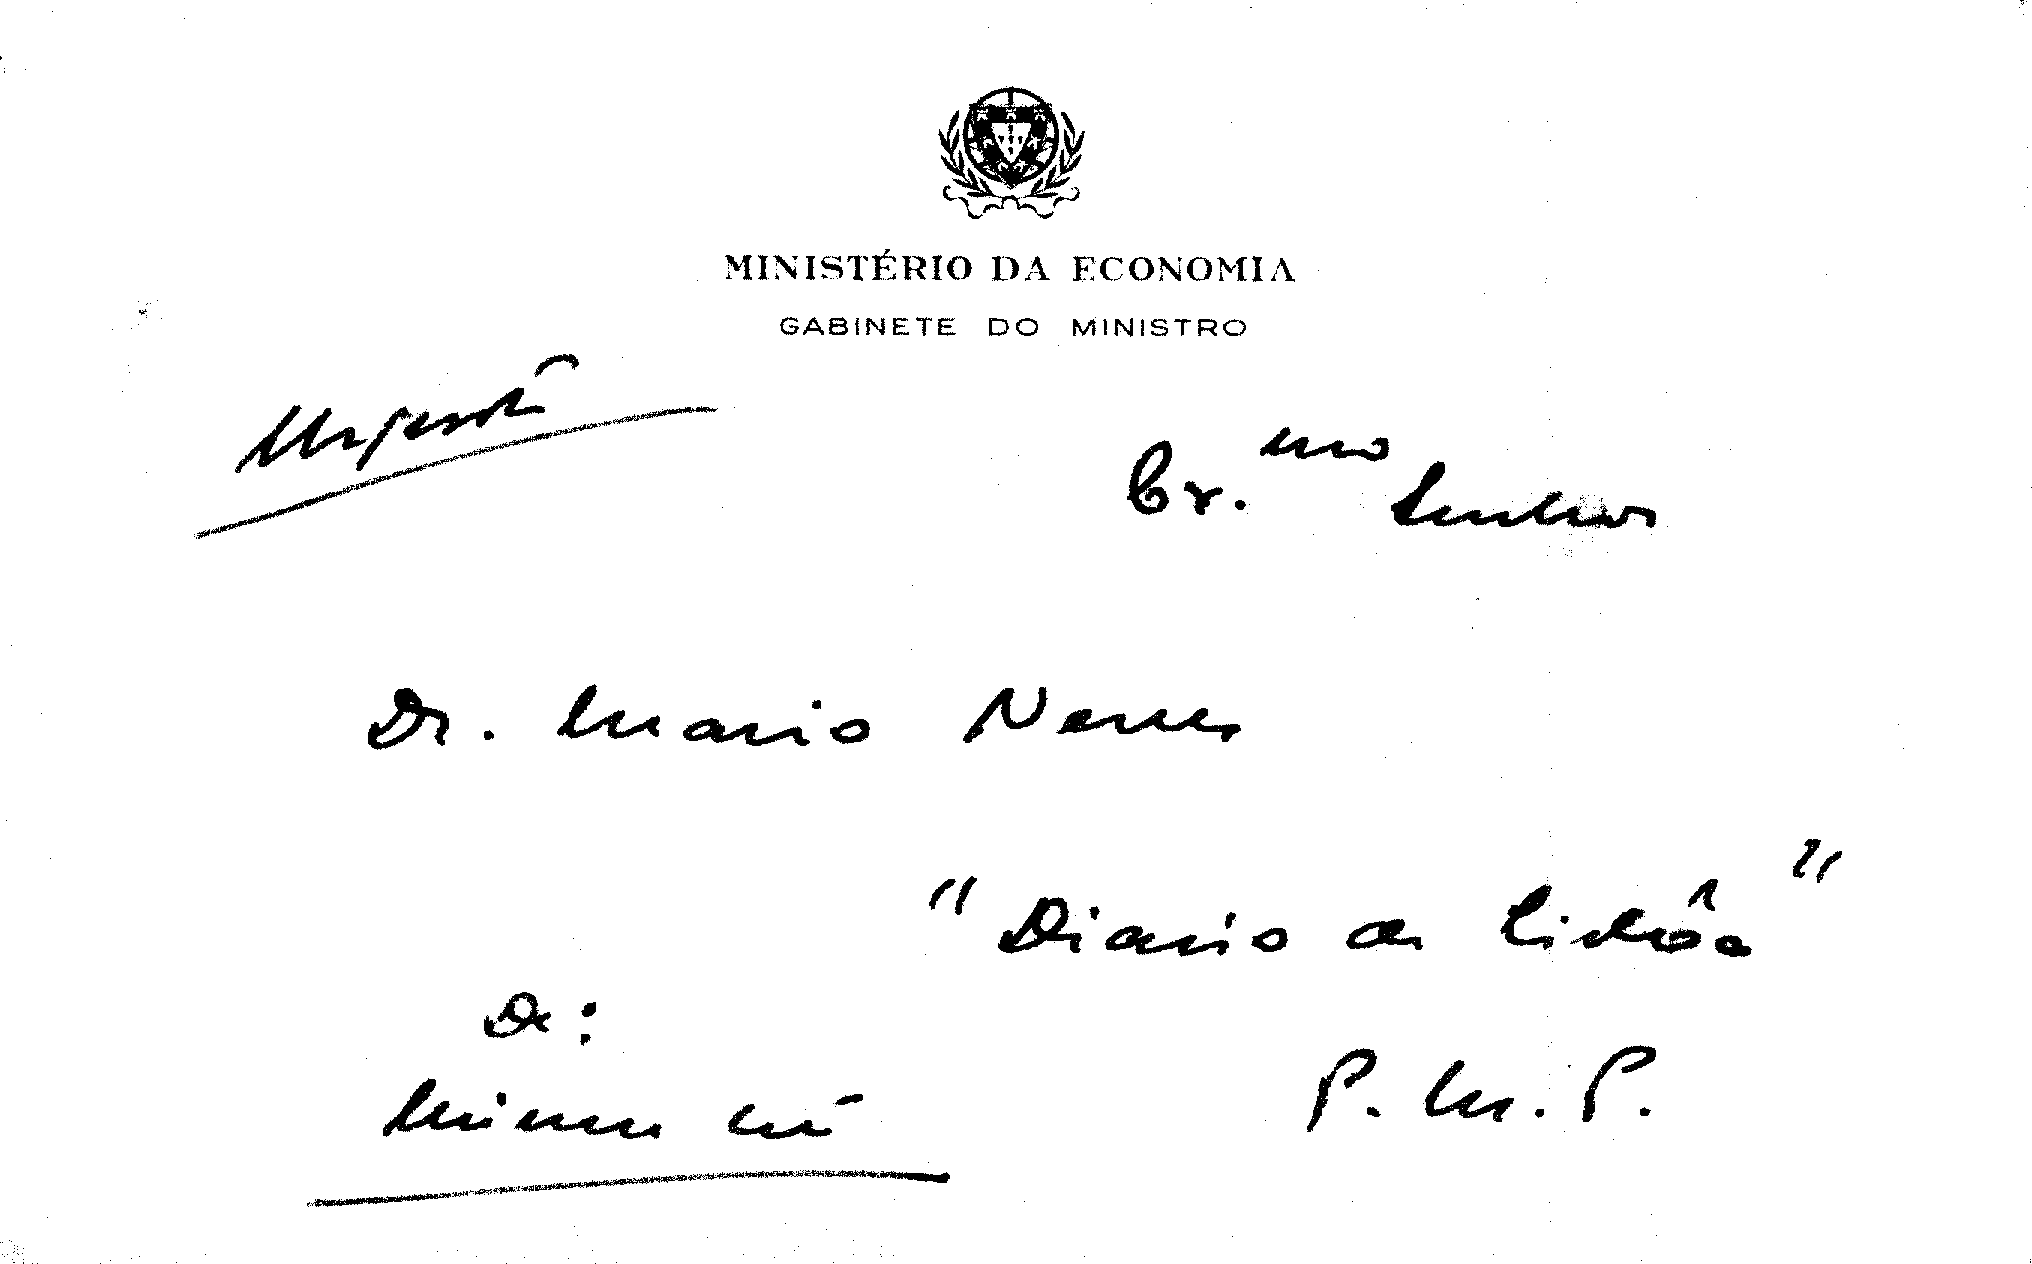 MINISTÉRIO DA ECONOMIA
GABINETE DO MINISTRO
Urgente
Ex.mo Senhor
Dr. Mario Neves
"Diario de Lisbôa"
De:
P. M. P.